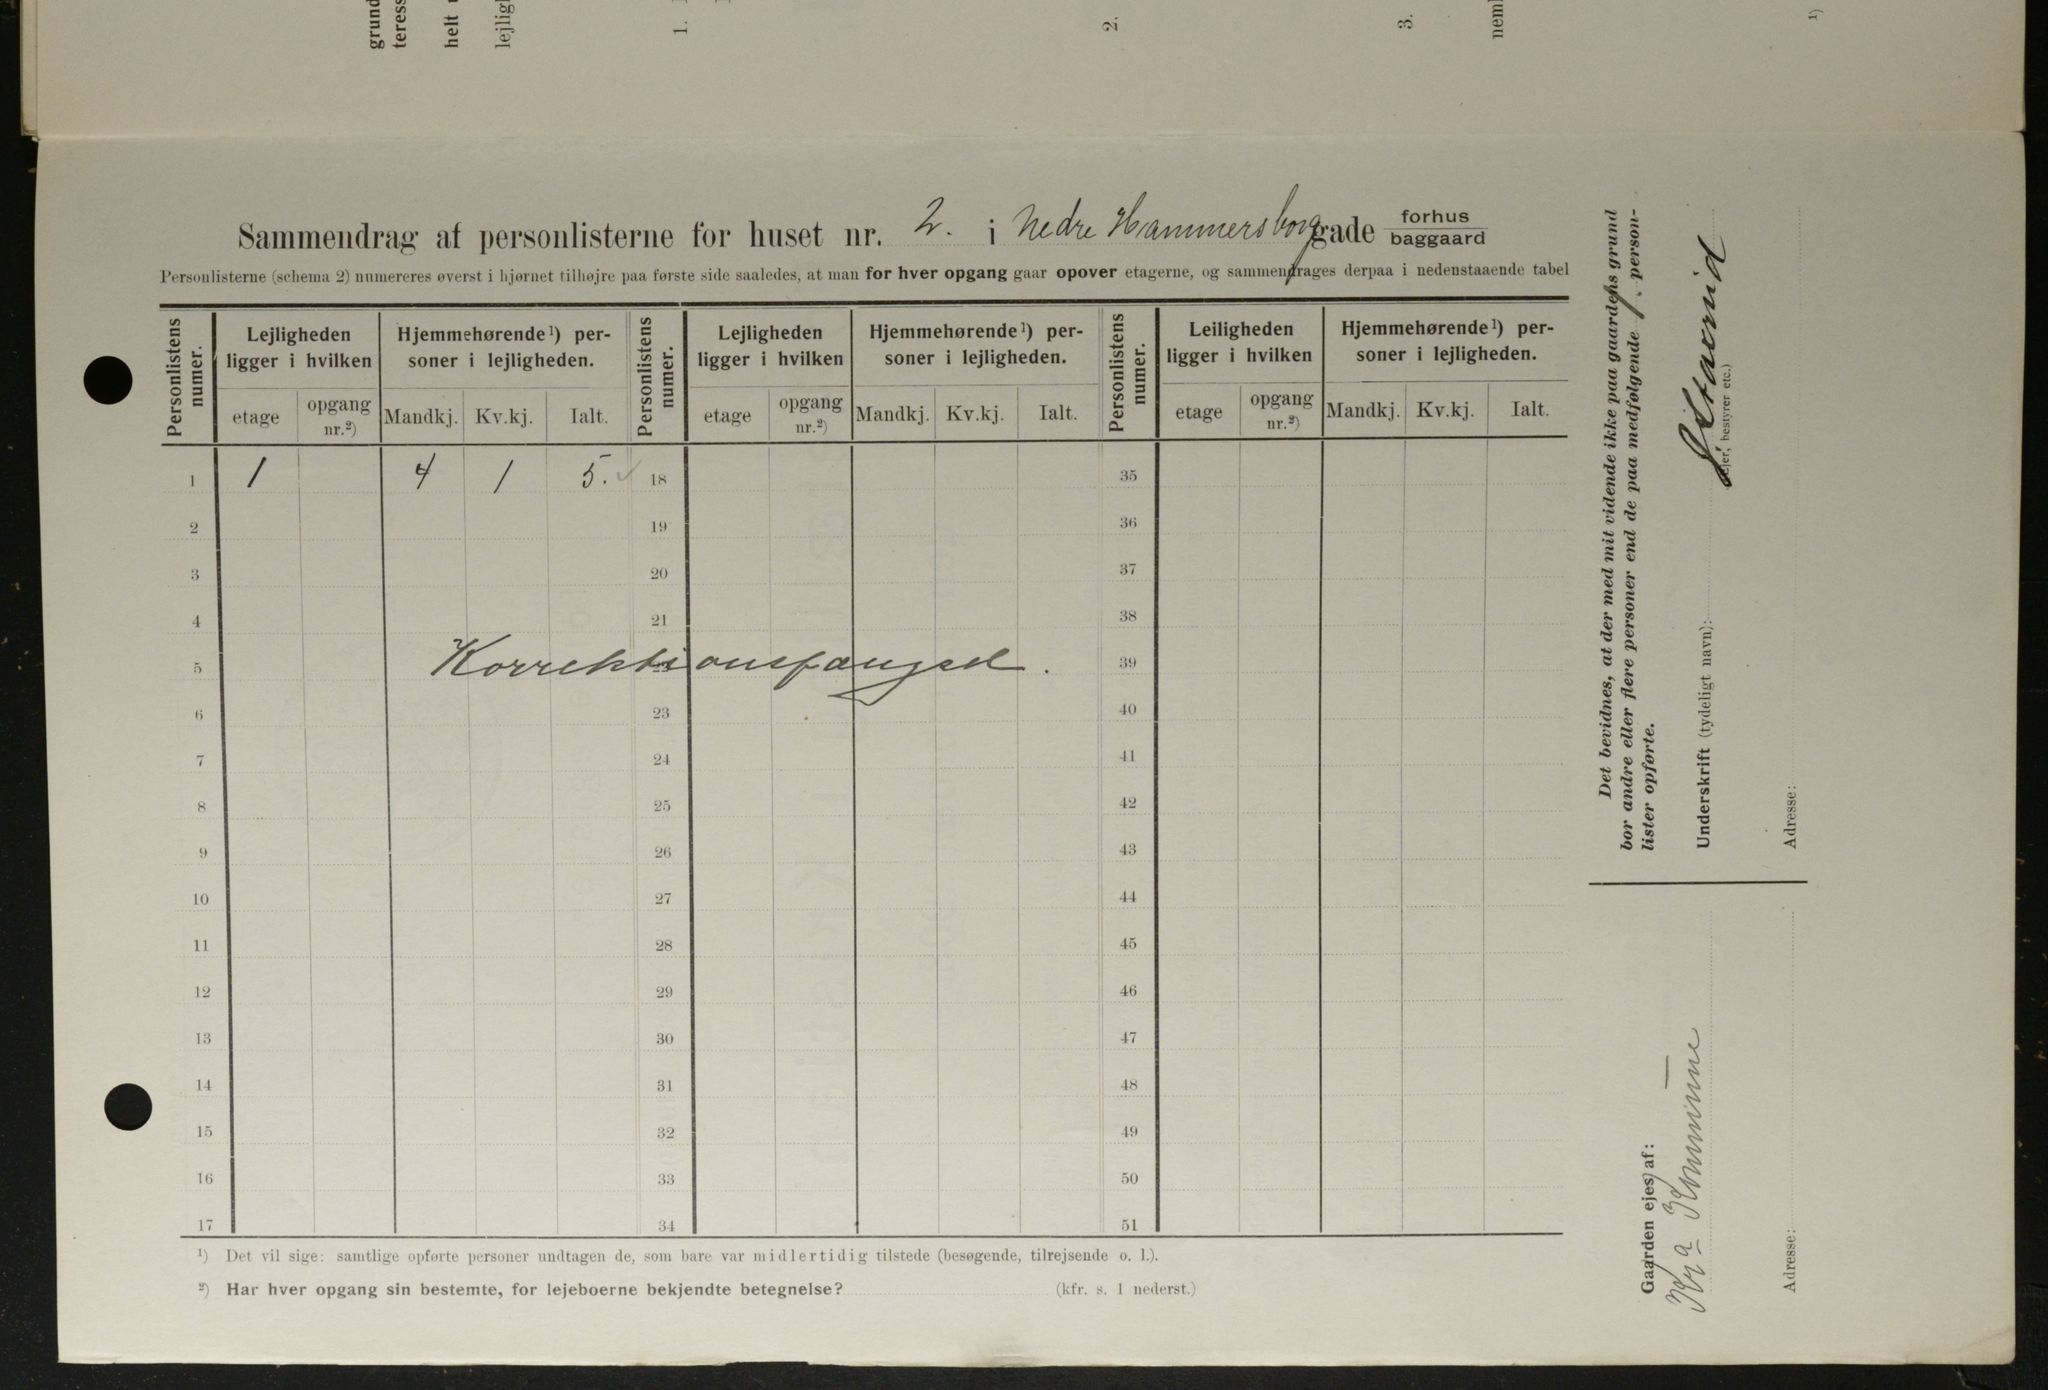 grund
teress
helt
lejligh
1.
2.
3.
neml
1)
Sammendrag af personlisterne for huset nr. 2. i Nedre Hammersborggade forhus
baggaard
Personlisterne (schema 2) numereres øverst i hjørnet tilhøjre paa første side saaledes, at man for hver opgang gaar opover etagerne, og sammendrages derpaa i nedenstaaende tabel
Personlistens numer. Lejligheden ligger i hvilken Hjemmehørende 1) personer i lejligheden. Personlistens numer. Lejligheden ligger i hvilken Hjemmehørende 1) personer i lejligheden. Personlistens numer. Leiligheden ligger i hvilken Hjemmehørende 1) personer i lejligheden.
etage opgang nr.2) Mandkj. Kv.kj. Ialt. etage opgang nr.2) Mandkj. Kv.kj. Ialt. etage opgang nr.2) Mandkj. Kv.kj. Ialt.
1 1 4 1 5. ✓ 18 35
2 19 36
3 20 37
4 21 38
5 Korrektionsfængsel. 39
6 23 40
7 24 41
8 25 42
9 26 43
10 27 44
11 28 45
12 29 46
13 30 47
14 31 48
15 32 49
16 33 50
17 34 51
1) Det vil sige: samtlige opførte personer undtagen de, som bare var midlertidig tilstede (besøgende, tilrejsende o. l.).
2) Har hver opgang sin bestemte, for lejeboerne bekjendte betegnelse? (kfr. s. 1 nederst.)
Det bevidnes, at der med mit vidende ikke paa gaardens grund
bor andre eller flere personer end de paa medfølgende 1. person-
lister opførte.
Underskrift (tydeligt navn):
(Ejer, bestyrer etc.)
Adresse:
Gaarden ejes af:
Kra Kommune
Adresse: